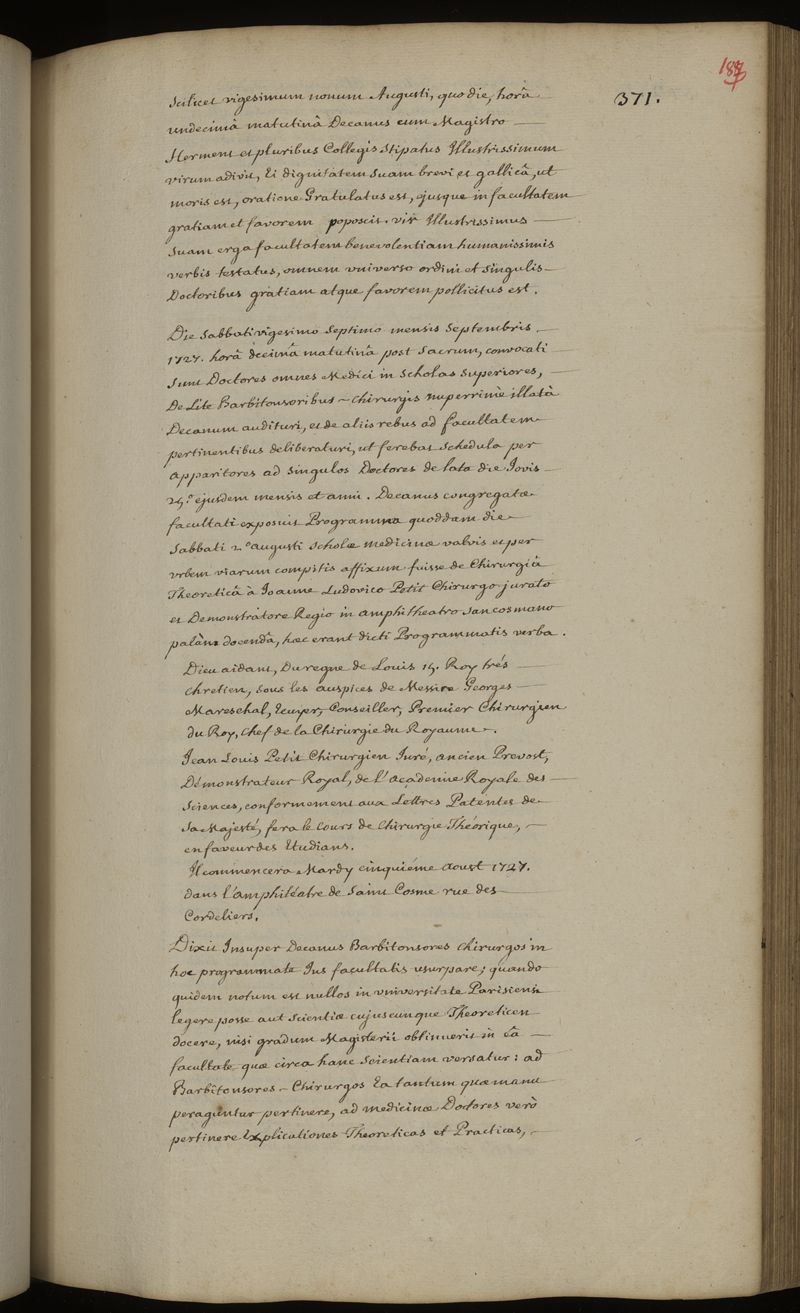 371.
Scilicet vigesimum nonum Augusti, quo die, horâ
undecimâ matutinâ Decanus cum Magistro
Herment et pluribus Collegis Stipatus Illustrissimum
virum adivit, Ei dignitatem Suam brevi et gallicâ, ut
moris est, oratione Gratulatus est, ejusque in facultatem
gratiam et favorem poposcit. vir Illustrissimus
Suam erga facultatem benevolentiam humanissimis
verbis testatus, omnem universo ordini et Singulis
Doctoribus gratiam atque favorem pollicitus est.
Die Sabbati vigesimo Septimo mensis Septembris
1727. horâ decimâ matutinâ post Sacrum, convocati
Sunt Doctores omnes Medici in Scholas Superiores,
De Lite Barbitonsoribus - Chirurgis nuperrimè illatâ
Decanum audituri, et de aliis rebus ad facultatem
pertinentibus deliberaturi, ut ferebat Schedula per
Apparitores ad Singulos Doctores de lata die Jovis
25.° ejusdem mensis et anni. Decanus congregatæ
facultati exposuit Programma quoddam die
Sabbati 2.° augusti Scholæ medicinæ valvis et per
urbem viarum compitis affixum fuisse de Chirurgiâ
Theoreticâ à Joanne Ludovico Petit Chirurgo jurato
et Demonstratore Regio in amphitheatro San cosmano
palàm docendâ, hæc erant dicti Programmatis verba.
Dieu aidant, Du regne de Louis 15. Roy trés
chretien, sous les auspices de Messire Georges
Mareschal, Ecuyer, Conseiller, Premier Chirurgien
du Roy, Chef de la Chirurgie du Royaume.
Jean Louis Petit Chirurgien Juré, ancien Prevost,
Démonstrateur Royal, de l'Academie Royale des
Sciences, conformement aux Lettres Patentes de
Sa Majesté, fera le Cours de Chirurgie Théorique,
en faveur des Etudians.
Il commencera Mardy cinquiéme Aoust 1727.
dans l'amphitéatre de Saint Cosme rue des
Cordeliers.
Dixit Insuper Decanus Barbitonsores Chirurgos in
hoc programmate Jus facultatis usurpare; quando
quidem notum est nullos in universitate Parisiensi
legere posse aut Scientiæ cujuscunque Theoreticen
docere, nisi gradum Magisterii obtinuerit in eâ
facultate quæ circa hanc Scientiam versatur: ad
Barbitonsores - Chirurgos Ea tantum quæ manu
peraguntur pertinere, ad medicinæ Doctores verò
pertinere Explicationes Theoreticas et Practicas,